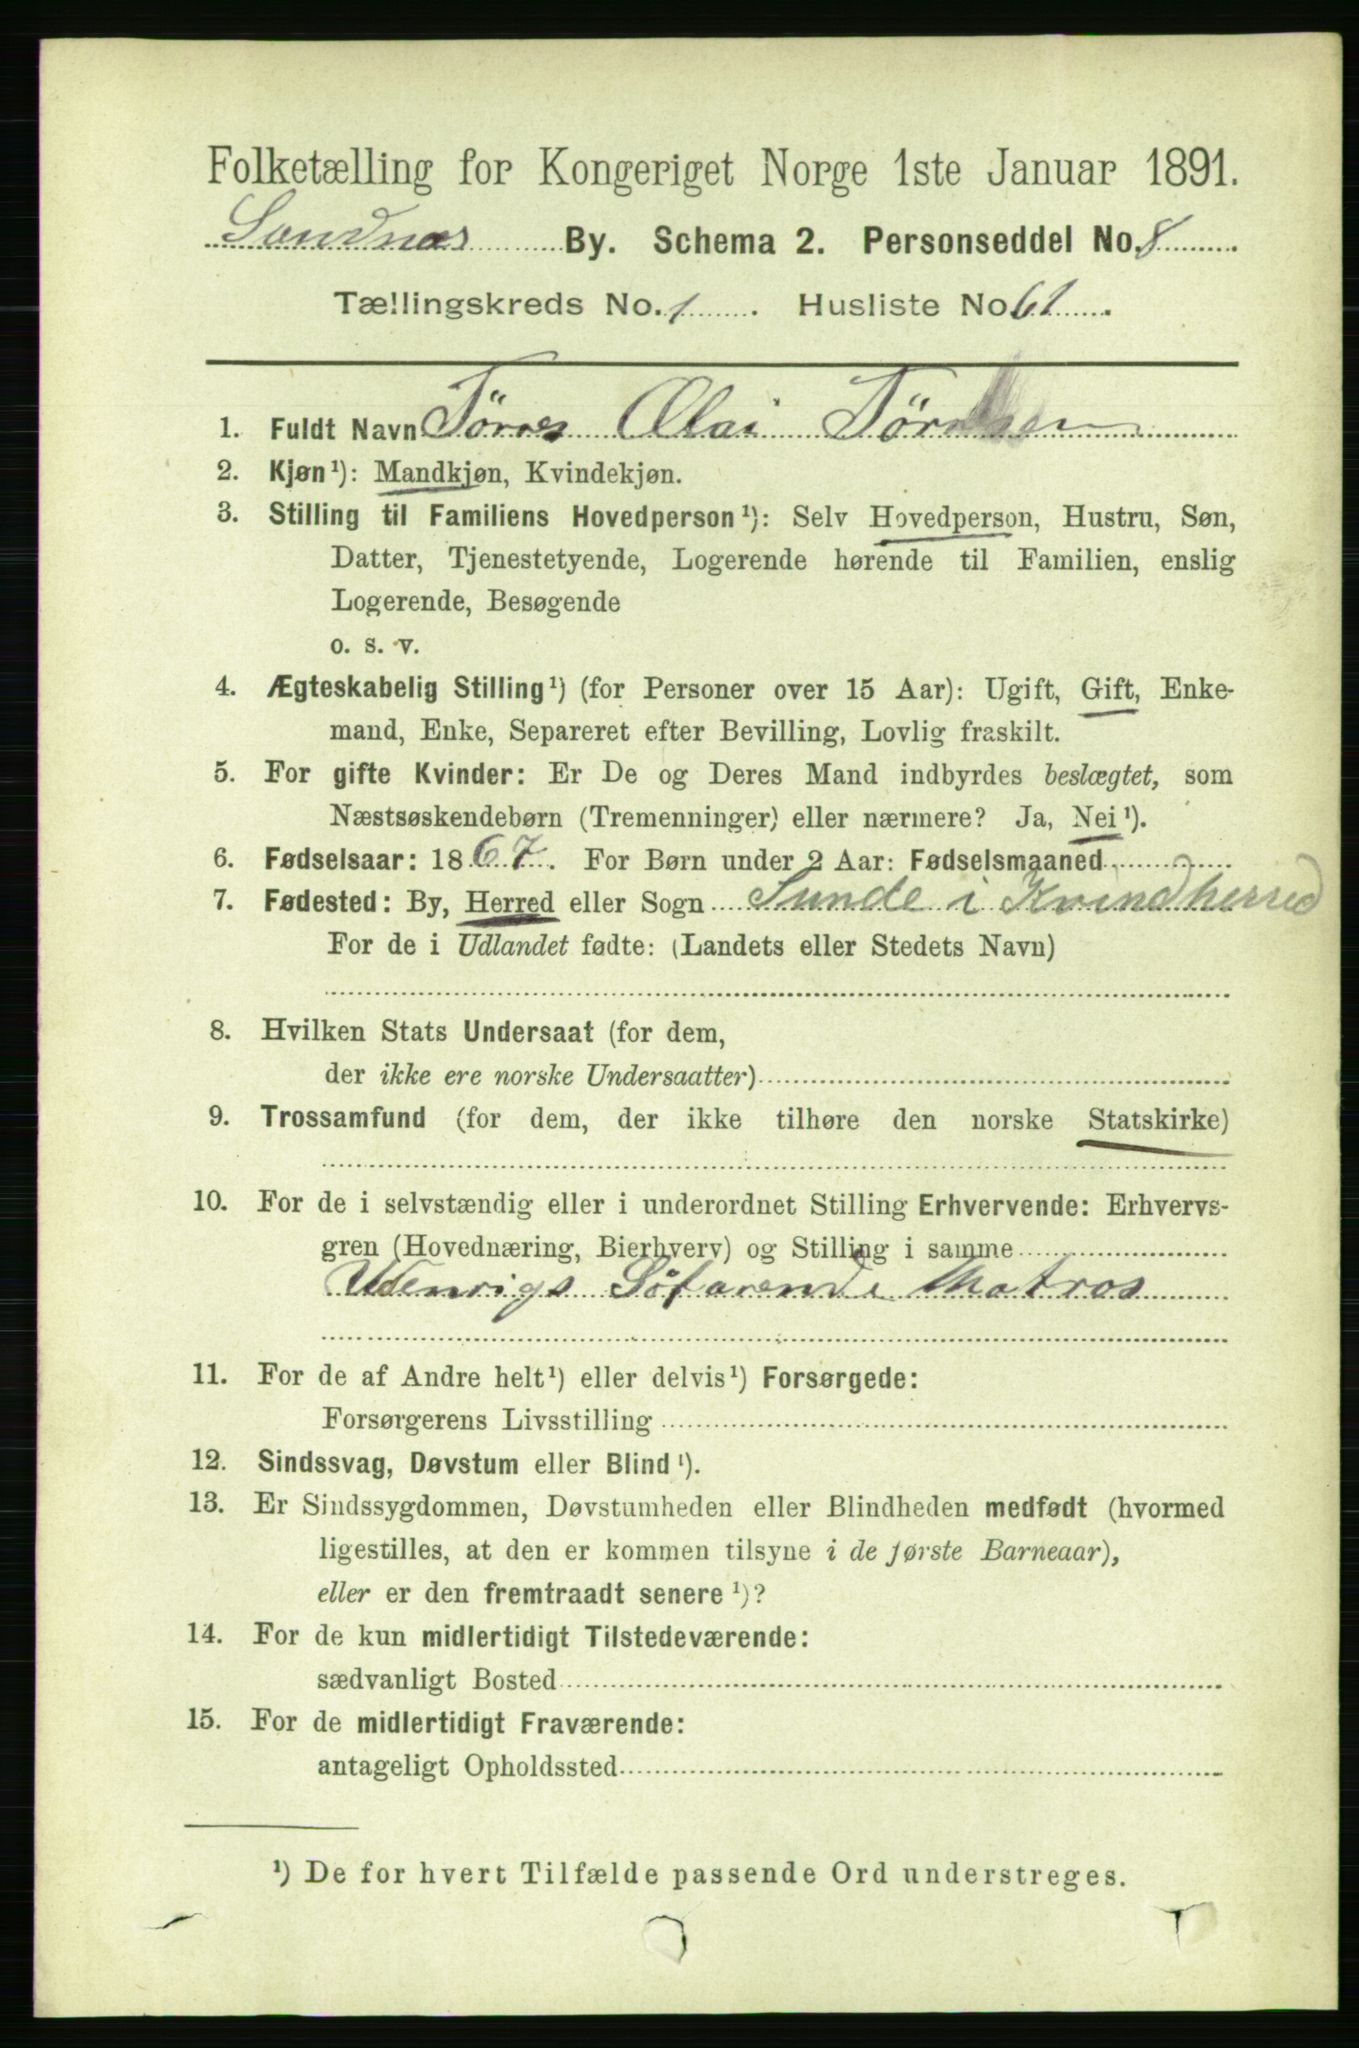 Folketælling for Kongeriget Norge 1ste Januar 1891.
Sandnæs By. Schema 2. Personseddel No. 8
Tællingskreds No. 1. Husliste No 61.
1. Fuldt Navn Törres Olai
2. Kjøn¹): Mandkjøn, Kvindekjøn.
3. Stilling til Familiens Hovedperson¹): Selv Hovedperson, Hustru, Søn,
Datter, Tjenestetyende, Logerende hørende til Familien, enslig
Logerende, Besøgende
o. s. v.
4. Ægteskabelig Stilling¹) (for Personer over 15 Aar): Ugift, Gift, Enke-
mand, Enke, Separeret efter Bevilling, Lovlig fraskilt.
5. For gifte Kvinder: Er De og Deres Mand indbyrdes beslægtet, som
Næstsøskendebørn (Tremenninger) eller nærmere? Ja, Nei¹).
6. Fødselsaar: 1867. For Børn under 2 Aar: Fødselsmaaned
7. Fødested: By, Herred eller Sogn Sunde i Kvindherred
For de i Udlandet fødte: (Landets eller Stedets Navn)
8. Hvilken Stats Undersaat (for dem,
der ikke ere norske Undersaatter)
9. Trossamfund (for dem, der ikke tilhøre den norske Statskirke)
10. For de i selvstændig eller i underordnet Stilling Erhvervende: Erhvervs-
gren (Hovednæring, Bierhverv) og Stilling i samme
Udenrigs Söfarende Matros
11. For de af Andre helt¹) eller delvis¹) Forsørgede:
Forsørgerens Livsstilling
12. Sindssvag, Døvstum eller Blind¹).
13. Er Sindssygdommen, Døvstumheden eller Blindheden medfødt (hvormed
ligestilles, at den er kommen tilsyne i de første Barneaar),
eller er den fremtraadt senere¹)?
14. For de kun midlertidigt Tilstedeværende:
sædvanligt Bosted
15. For de midlertidigt Fraværende:
antageligt Opholdssted
¹) De for hvert Tilfælde passende Ord understreges.